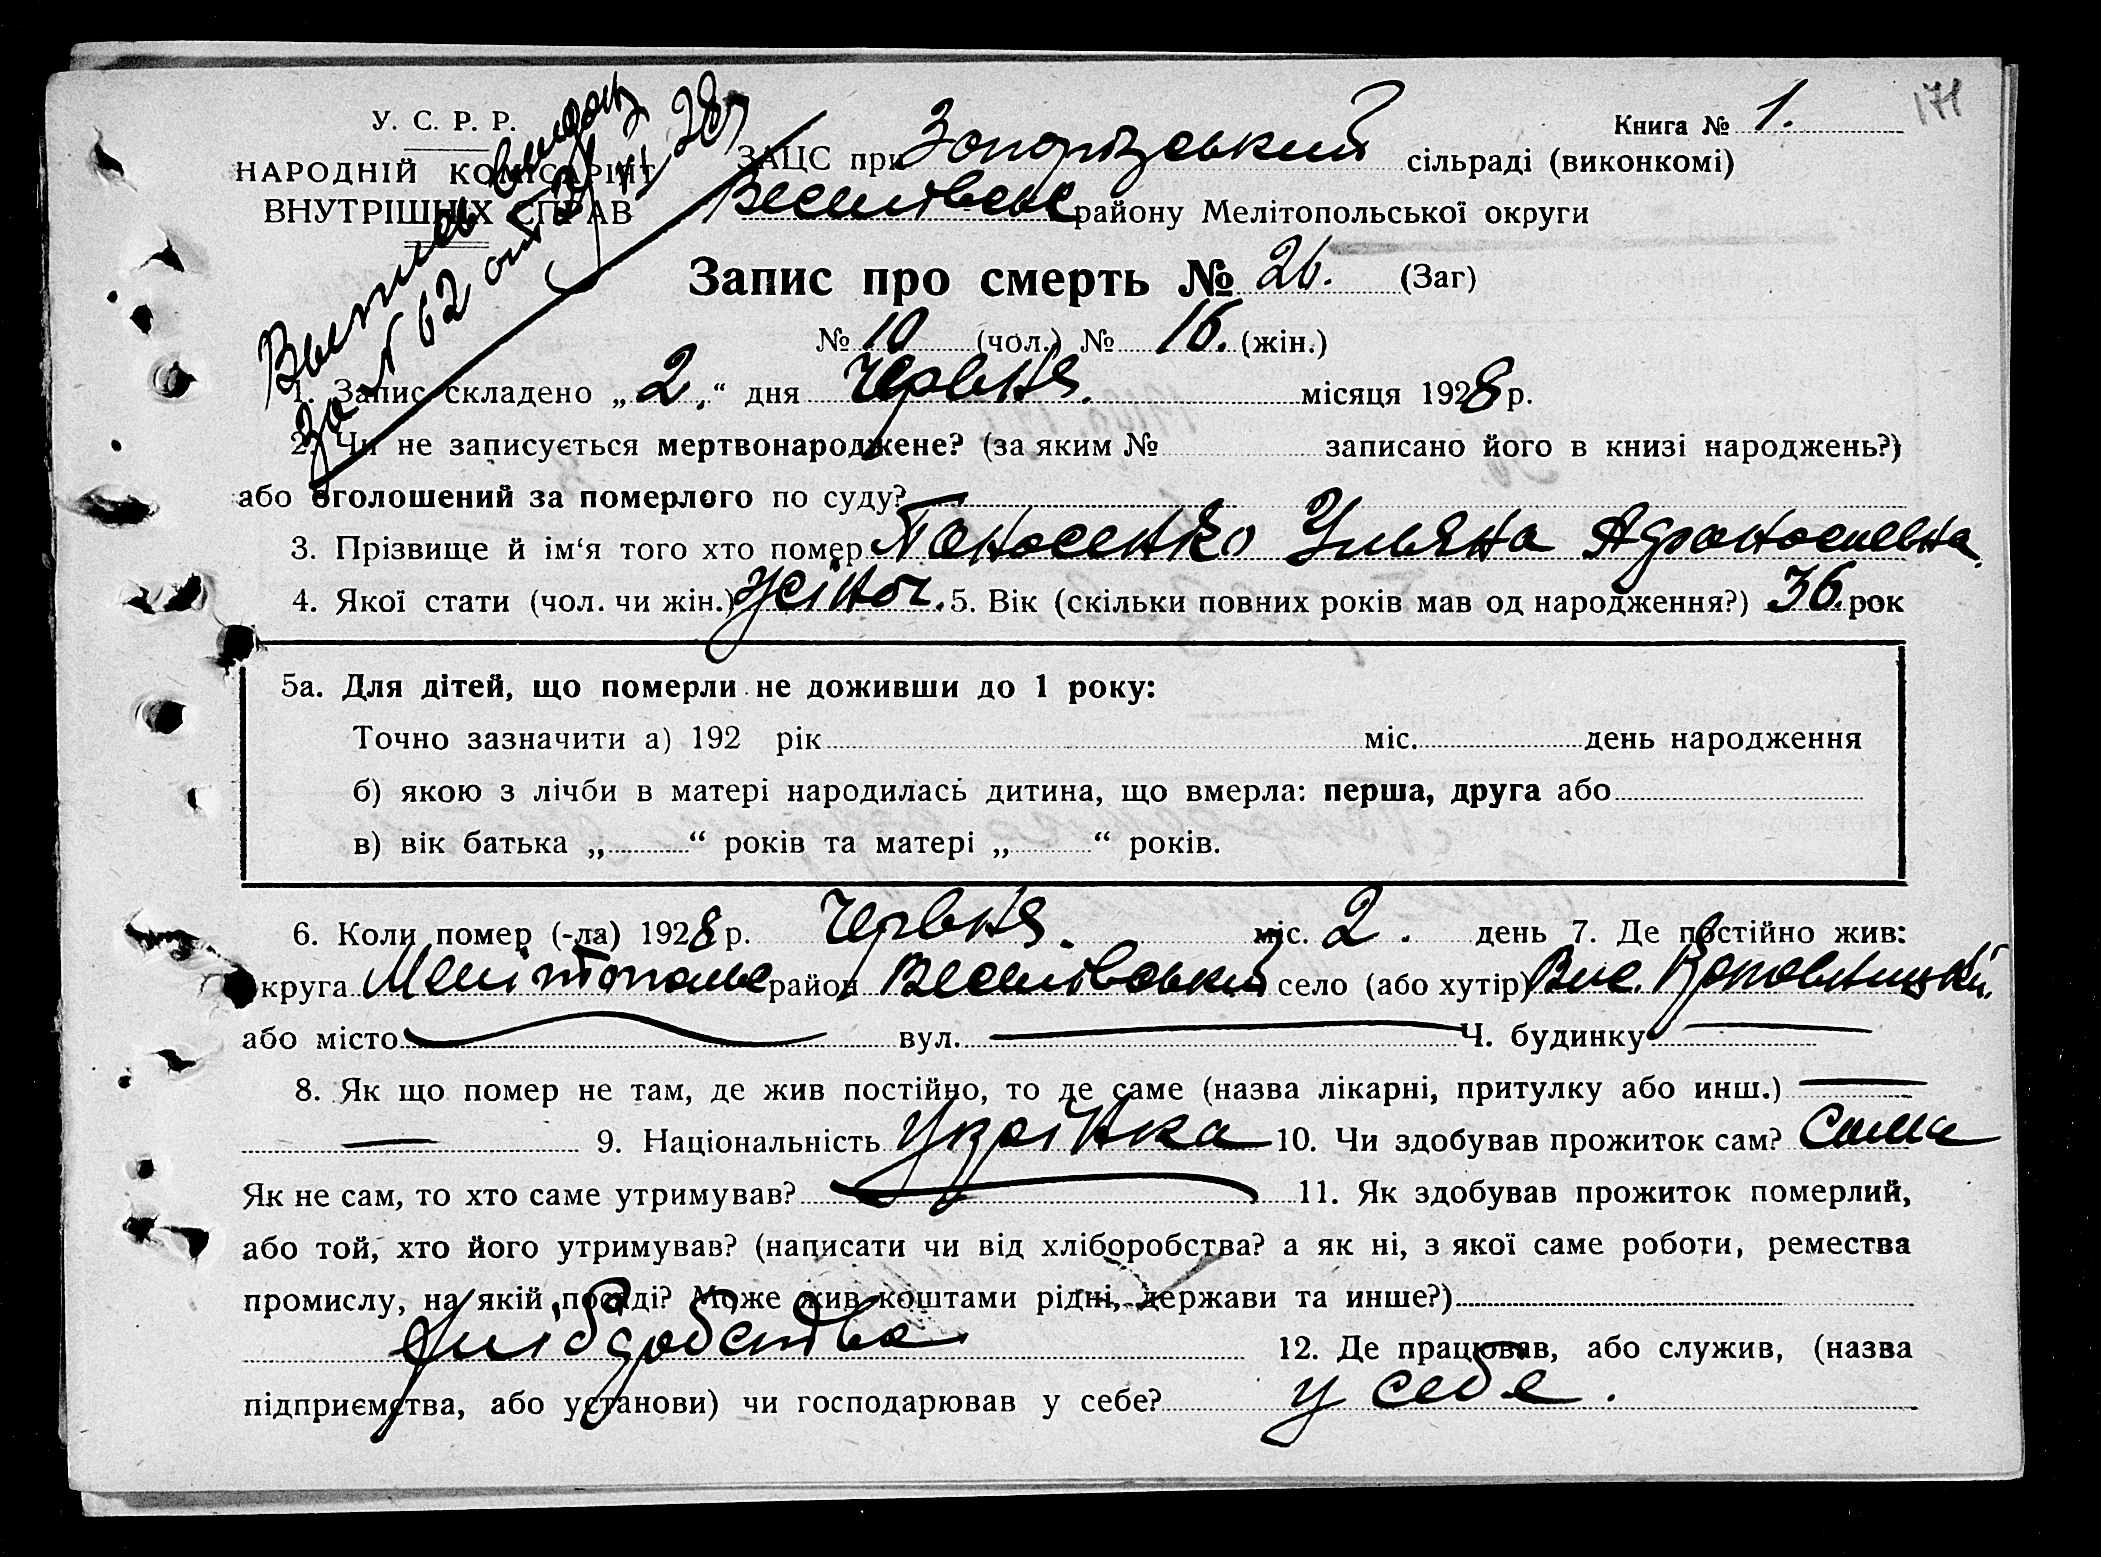 171
Книга № 1.
У. С. Р. Р.
НАРОДНІЙ КОМІСАРІЯТ
ВНУТРІШНІХ СПРАВ
за № 62 от 28
ЗАЦС при Запорізський сільраді (виконкомі)
Веселівське району Мелітопольської округи
Запис про смерть № 26. (Заг)
№ 10 (чол.) № 16. (жін.)
1. Запис складено „ 2. “ дня Червня. місяця 1928 р.
2. Чи не записується мертвонароджене? (за яким № записано його в книзі народжень?)
або оголошений за померлого по суду?
3. Прізвище й ім‘я того хто помер Таносенко Ульяна
4. Якої стати (чол. чи жін.) жіноч. 5. Вік (скільки повних років мав од народження?) 36. рок
5а. Для дітей, що померли не доживши до 1 року:
Точно зазначити а) 192 рік міс. день народження
б) якою з лічби в матері народилась дитина, що вмерла: перша, друга або
в) вік батька „ “ років та матері „ “ років.
6. Коли помер (-ла) 1928 р. Червня. міс. 2. день 7. Де постійно жив:
округа Мелітопольс район Веселівський село (або хутір) Вис.
або місто вул. Ч. будинку
8. Як що помер не там, де жив постійно, то де саме (назва лікарні, притулку або инш.)
9. Національність Укрїнка 10. Чи здобував прожиток сам? Сама
Як не сам, то хто саме утримував? 11. Як здобував прожиток померлий,
або той, хто його утримував? (написати чи від хліборобства? а як ні, з якої саме роботи, ремества
промислу, на якій посаді? Може жив коштами рідні, держави та инше?)
12. Де працював, або служив, (назва
підприємства, або установи) чи господарював у себе? у себе.